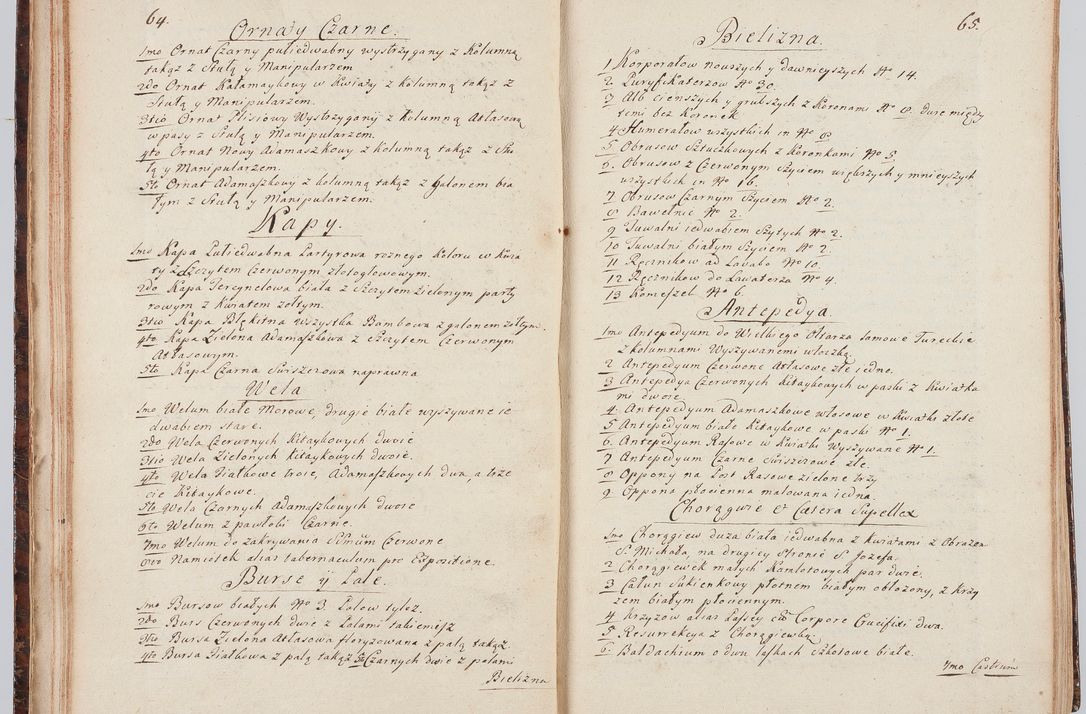 64.
Ornaty Czarne.
1mo Ornat Czarny pułiedwabny wystrzygany z Kolumną
takąz z Stułą y Manipularzem
2do Ornat Kałamaykowy w Kwiaty z kolumną takąz z
Stułą y Manipularzem.
3tio Ornat Plisiowy Wystrzygany z Kolumną Atłasową
w pasy z Stułą y Manipularzem.
4to Ornat Nowy Adamaszkowy z kolumną takąz z Stu
łą y Manipularzem.
5to Ornat Adamaszkowy z kolumną takąz z Galonem bia
łym z Stułą y Manipularzem.
Kapy.
1mo Kapa Pułiedwabna Partyrowa roznego koloru w kwia
ty z Szczytem Czerwonym złotogłowowym.
2do Kapa Tercynelowa biała z Szczytem zielonym party
rowym z Kwiatem zołtym.
3tio Kapa Błękitna wszystka Bambowa z galonem zołtym.
4to Kapa Zielona Adamaszkowa z Szczytem Czerwonym
Atłasowym.
5to Kapa Czarna Swiszczowa naprawna
Wela
1mo Welum białe Morowe, drugie białe wyszywane ie
dwabiem stare.
2do Wela Czerwonych Kitaykowych dwoie
3tio Wela Zielonych Kitaykowych dwoie.
4to Wela Fiałkowe troie, Adamaszkowych dwa, a trze
cie Kitaykowe.
5to Wela Czarnych Adamaszkowych dwoie
6to Welum z pawłoki Czarne.
7mo Welum do zakrywania Czerwone
8vo Namiotek alias tabernaculum pro Expositione.
Burse ÿ Pale.
1mo Bursow białych No 3. Palow tylez.
2do Burs Czerwonych dwie z Palami takiemisz
3tio Bursa Zielona Atłasowa floryzowana z palą takąz
4to Bursa Fiałkowa z palą takąz 5to Czarnych dwie z palami
Bielizna
65.
Bielizna.
1 Korporałow nowszych y dawnieyszych No 14.
2. Puryfikaterzow No 30.
3 Alb cienszych y grubszych z Koronami No 8. dwie między
temi bez Koronek
4 Humerałow wszystkich in No 8
5. Obrusow Sztuczkowych z Koronkami No 5.
6. Obrusow z Czerwonym Szyciem większych y mnieyszych
wszystkich in No 16.
7 Obrusow Czarnym Szyciem No 2.
8 Bawełnic No 2.
9 Tuwalni iedwabiem Szytych No 2.
10 Tuwalni białym Szyciem No 2.
11 Ręcznikow ad Lavabo No 10.
12 Ręcznikow do Lawaterza No 4.
13 Komeszel No 6.
Antepedya.
1mo Antepedyum do Wielkiego Ołtarza samowe Tureckie
z kolumnami Wyszywanemi włoczką.
2 Antepedyum Czerwone Atłasowe złe iedno.
3 Antepedya Czerwonych Kitaykowych w paski z Kwiatka
mi dwoie.
4. Antepedyum Adamaszkowe włosowe w Kwiatki złote
5 Antepedyum białe Kitaykowe w paski No 1.
6. Antepedyum Rasowe w kwiatki Wyszywane No 1.
7 Antepedyum Czarne Swiszczowe złe.
8 Oppony na Post Rasowe zielone trzy
9. Oppona płocienna malowana iedna.
Chorągwie et Cætera Supellex
1mo Chorągiew duza biała iedwabna z kwiatami z Obrazem
S. Michała, na drugiey stronie S Jozefa.
2 Chorągiewek małych Kamlotowych par dwie.
3 Całun Sukienkowy płotnem białym obłozony, z Krzy
zem białym płociennym.
4 Krzyzow alias Passyi cu Corpore Crucifixi dwa.
5 Resurrekcya z Chorągiewką
6. Baldachium o dwu laskach Szkotowe białe.
7mo Castrum